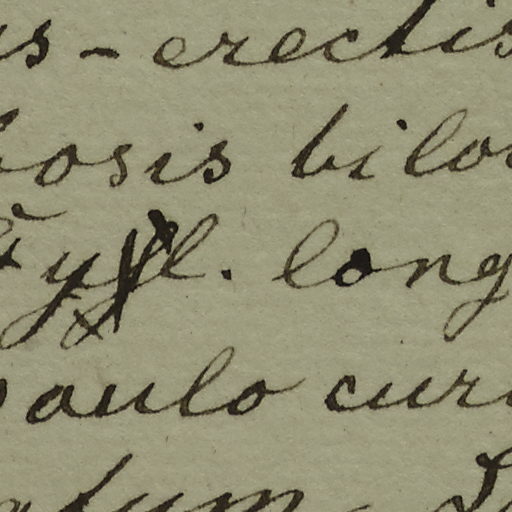 us-erectis
bosis bilo
l. long
paulo cur
atum